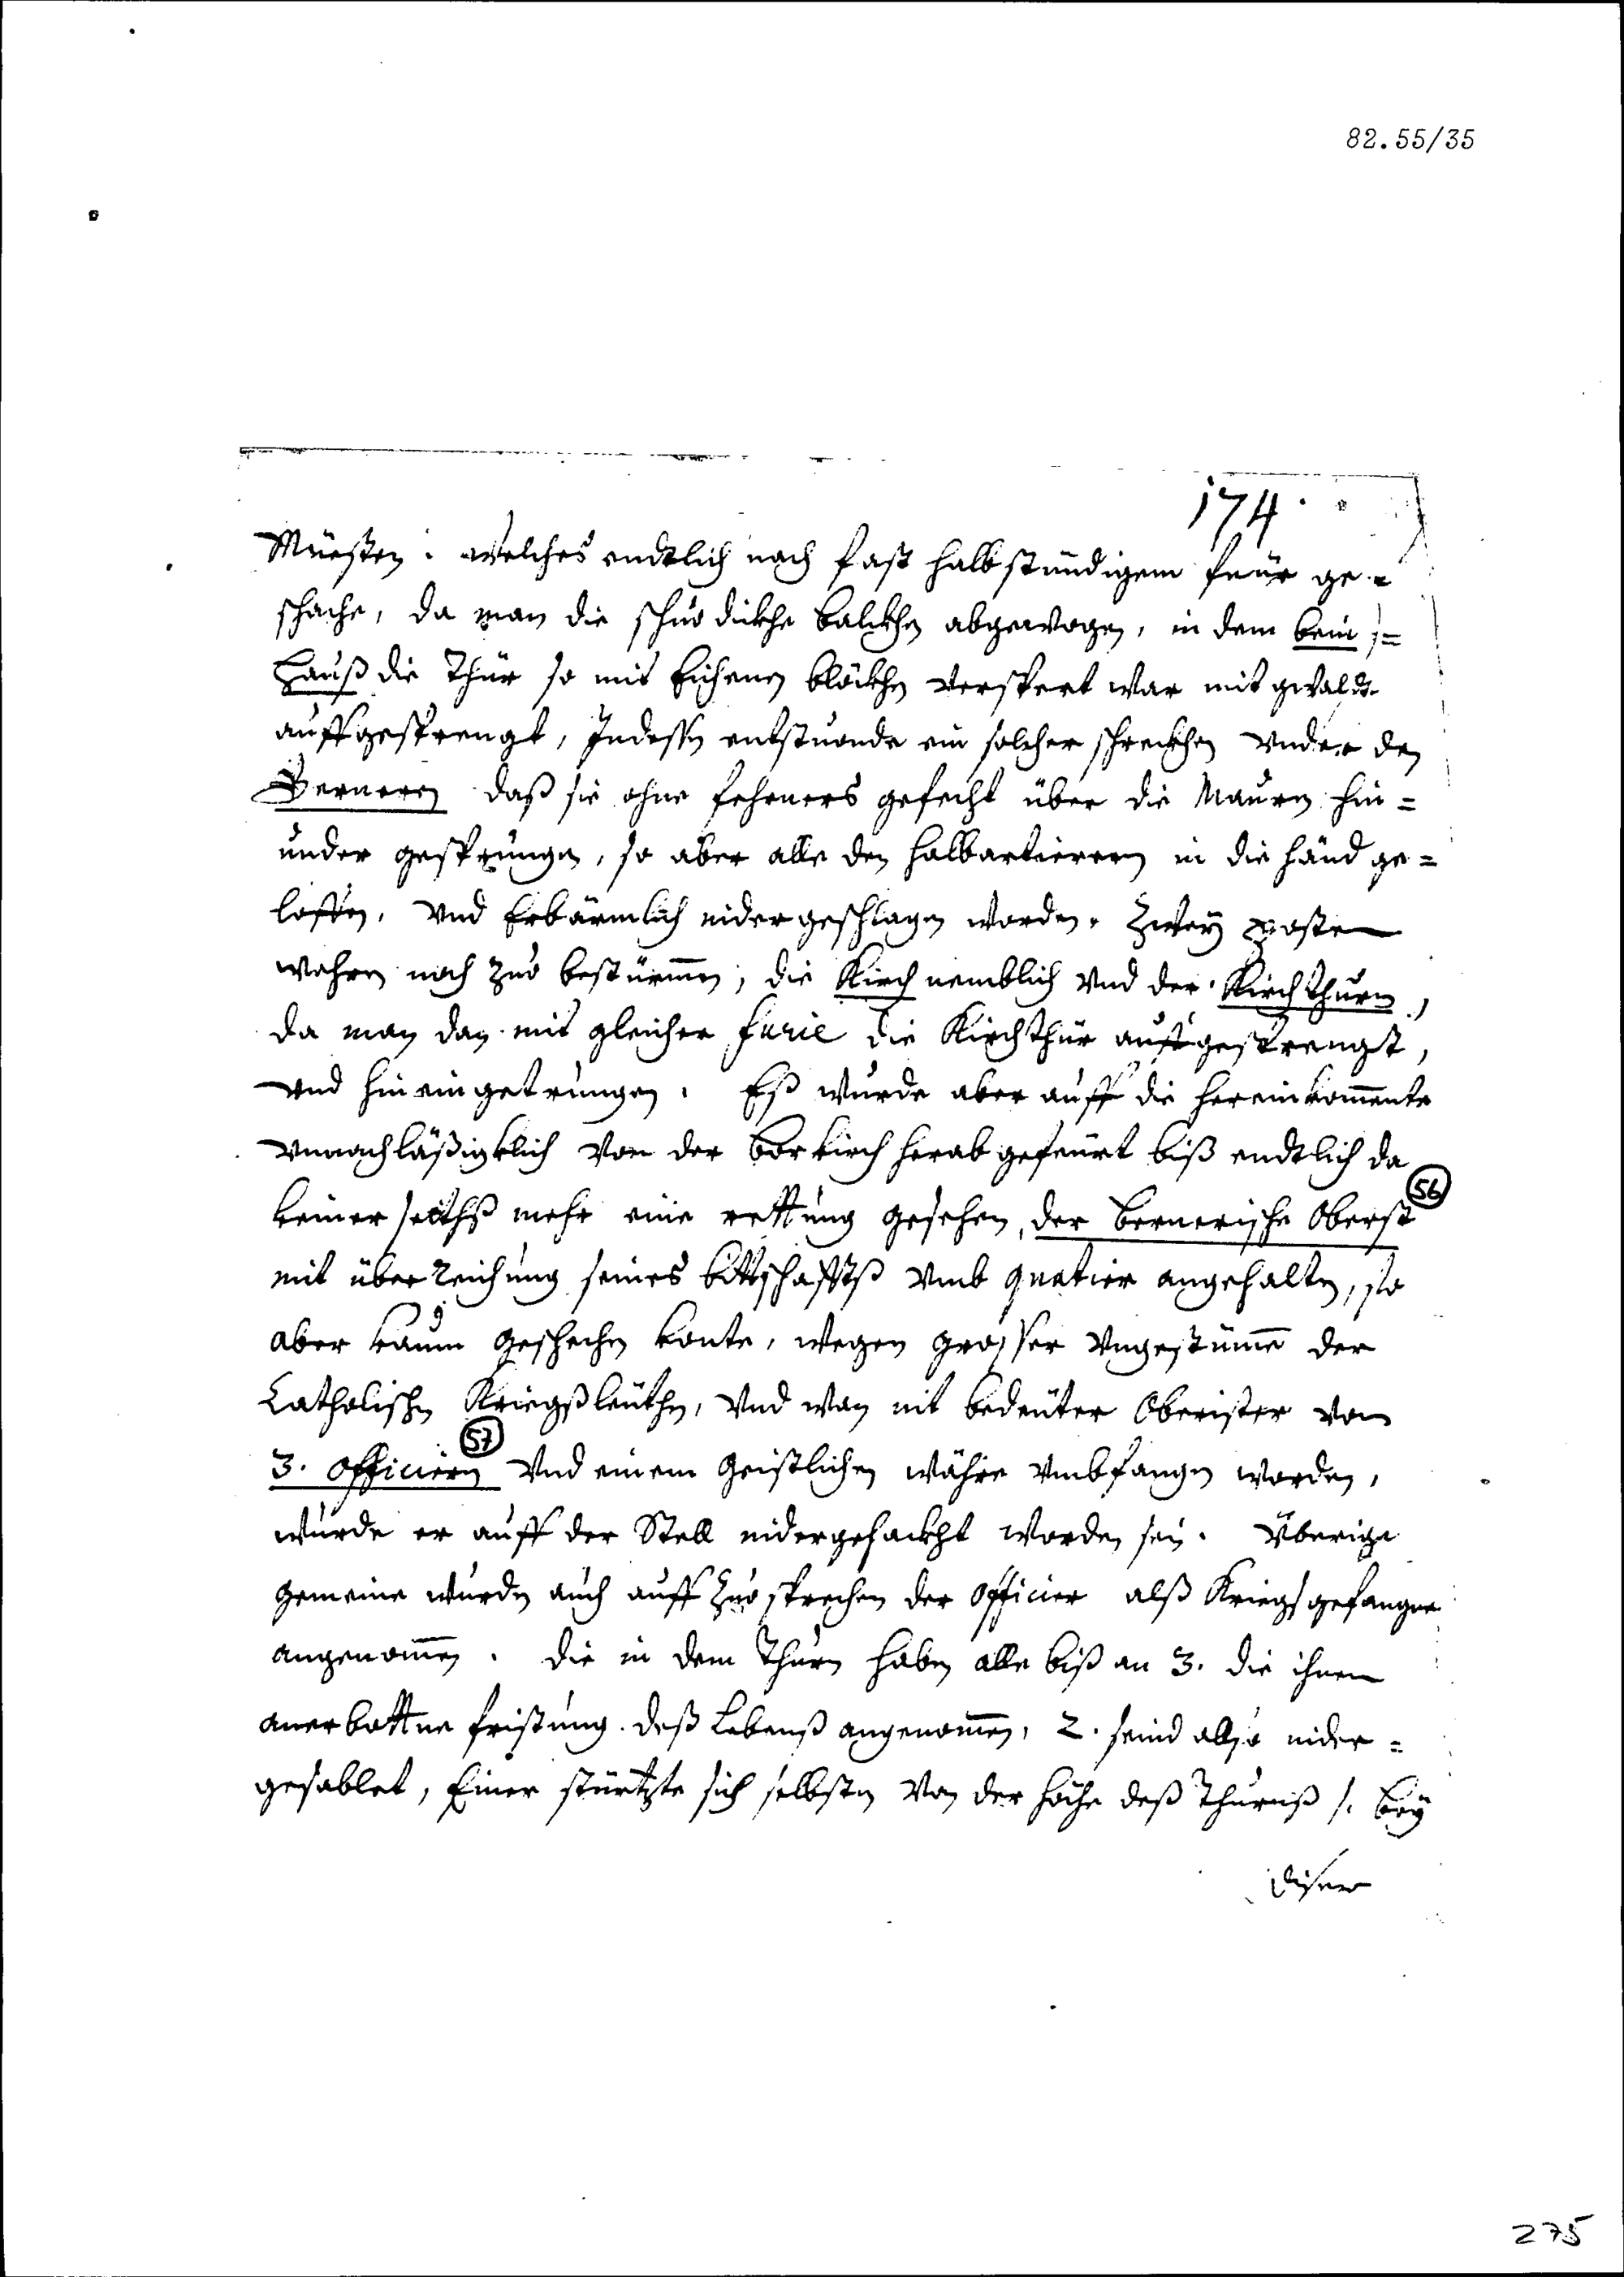 82.55/35
174
Müesten. welches endtlich nach fast halbstündigem feür ge=
schache, da man die schuo dickhe balckhen abgewogen, in dem bein=
hauß die Thür so mit Eichenen blöckhen verspert war mit gwaldt
auffgesprengt, Indessen entstuonde ein solcher schreckhen under den
Berneren daß sie ohne fehrners gefecht über die Mauren hin=
under gesprungen, so aber alle den halbartiereren in die händ ge=
loffen, und Erbärmlich nidergeschlagen worden. Zwey posten
wahren noch zuo bestürmen, die Kirch nemblich und der Kirchthurn,
da man dan mit gleicher furie die Kirchthür auffgesprengt,
und hineingetrungen. Eß wurde aber auff die hereinkommente
unnachläßigklich von der borkirch herab gefeürt biß endtlich da
keinerseithß mehr eine rettung gesehen, der bernerische Oberst (56)
mit überreichung seines bittschafftß umb quatier angehalten, so
aber kaum geschechen konte, wegen grosser Ungestümme der
Catholischen Kriegßleüthen, und wan nit bedeuter Oberister von
3. officiern (57) und einem Geistlichen währe umbfangen worden,
wurde er auff der Stell nidergehackht worden sein. Überige
gemeine wurden auch auff zuosprechen der officier alß Kriegsgefangne
angenommen. die in dem Thurn haben alle biß an 3. die ihnen
anerbottne fristung deß Lebenß angenommen, 2. seind also nider=
gesablet, Einer stürtzte sich selbsten von der höche deß Thurnß /. bey
diser
275